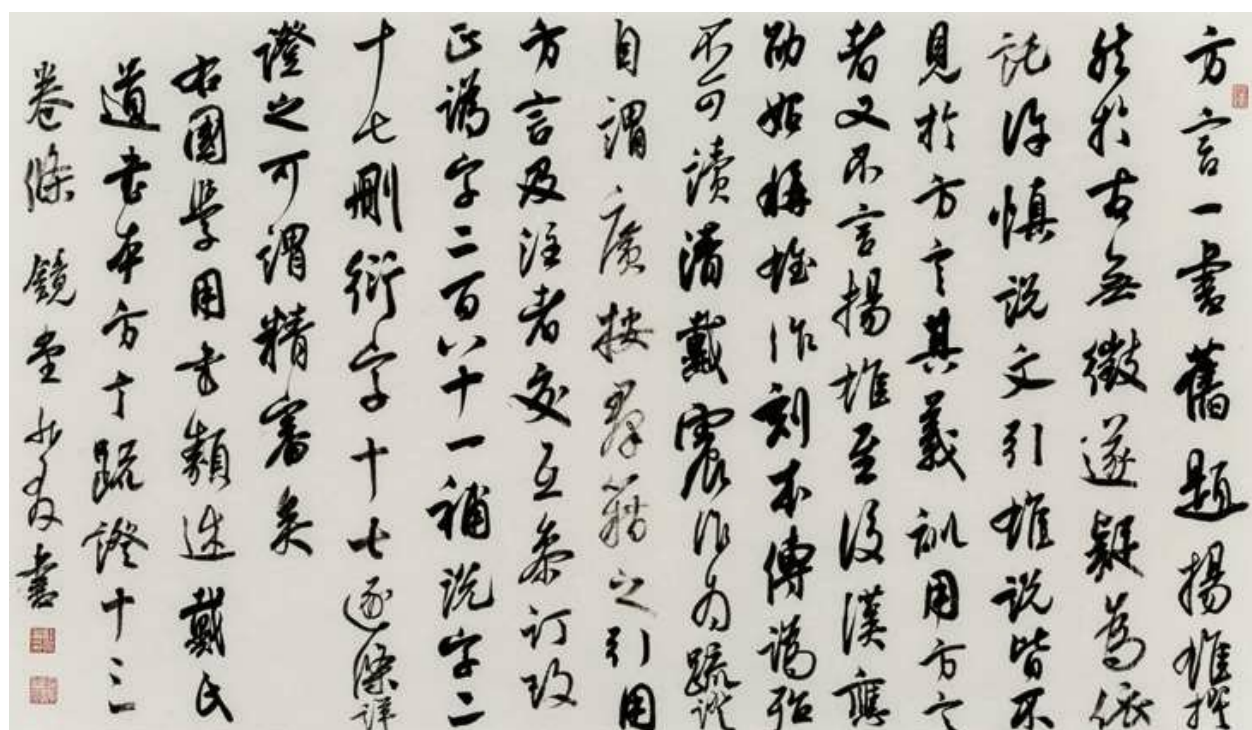 方言一書舊題揚雄撰
然於古無徵遂疑為依
託許慎說文引雄說皆不
見於方言其義訓用方言
者又不言揚雄至後漢應
劭始稱雄作刻本傳譌殆
不可讀清戴震作為疏證
自謂廣按群籍之引用
方言及注者交互參訂改
正譌字二百八十一補說字二
十七刪衍字十七逐條詳
證之可謂精審矣
右國學用書類述戴氏
遺書本方言疏證十三
卷條 鏡堂 書